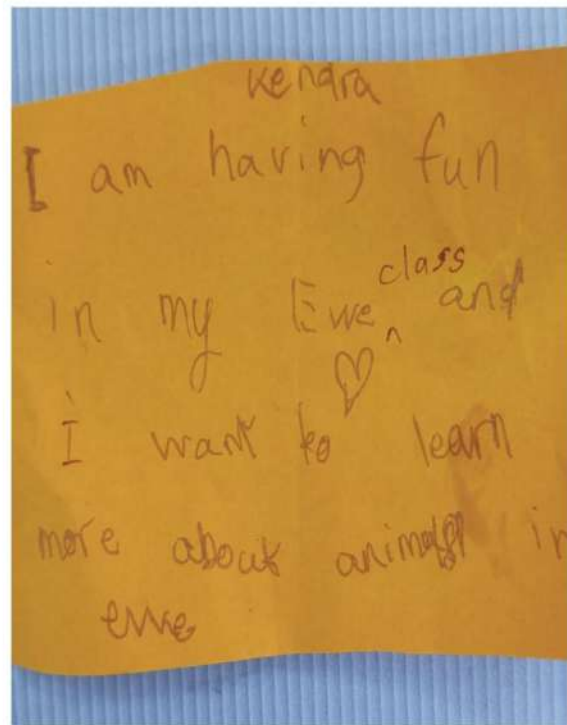 Kendra
I am having fun
in my Ewe class and
I want to learn
more about animals in
ewe